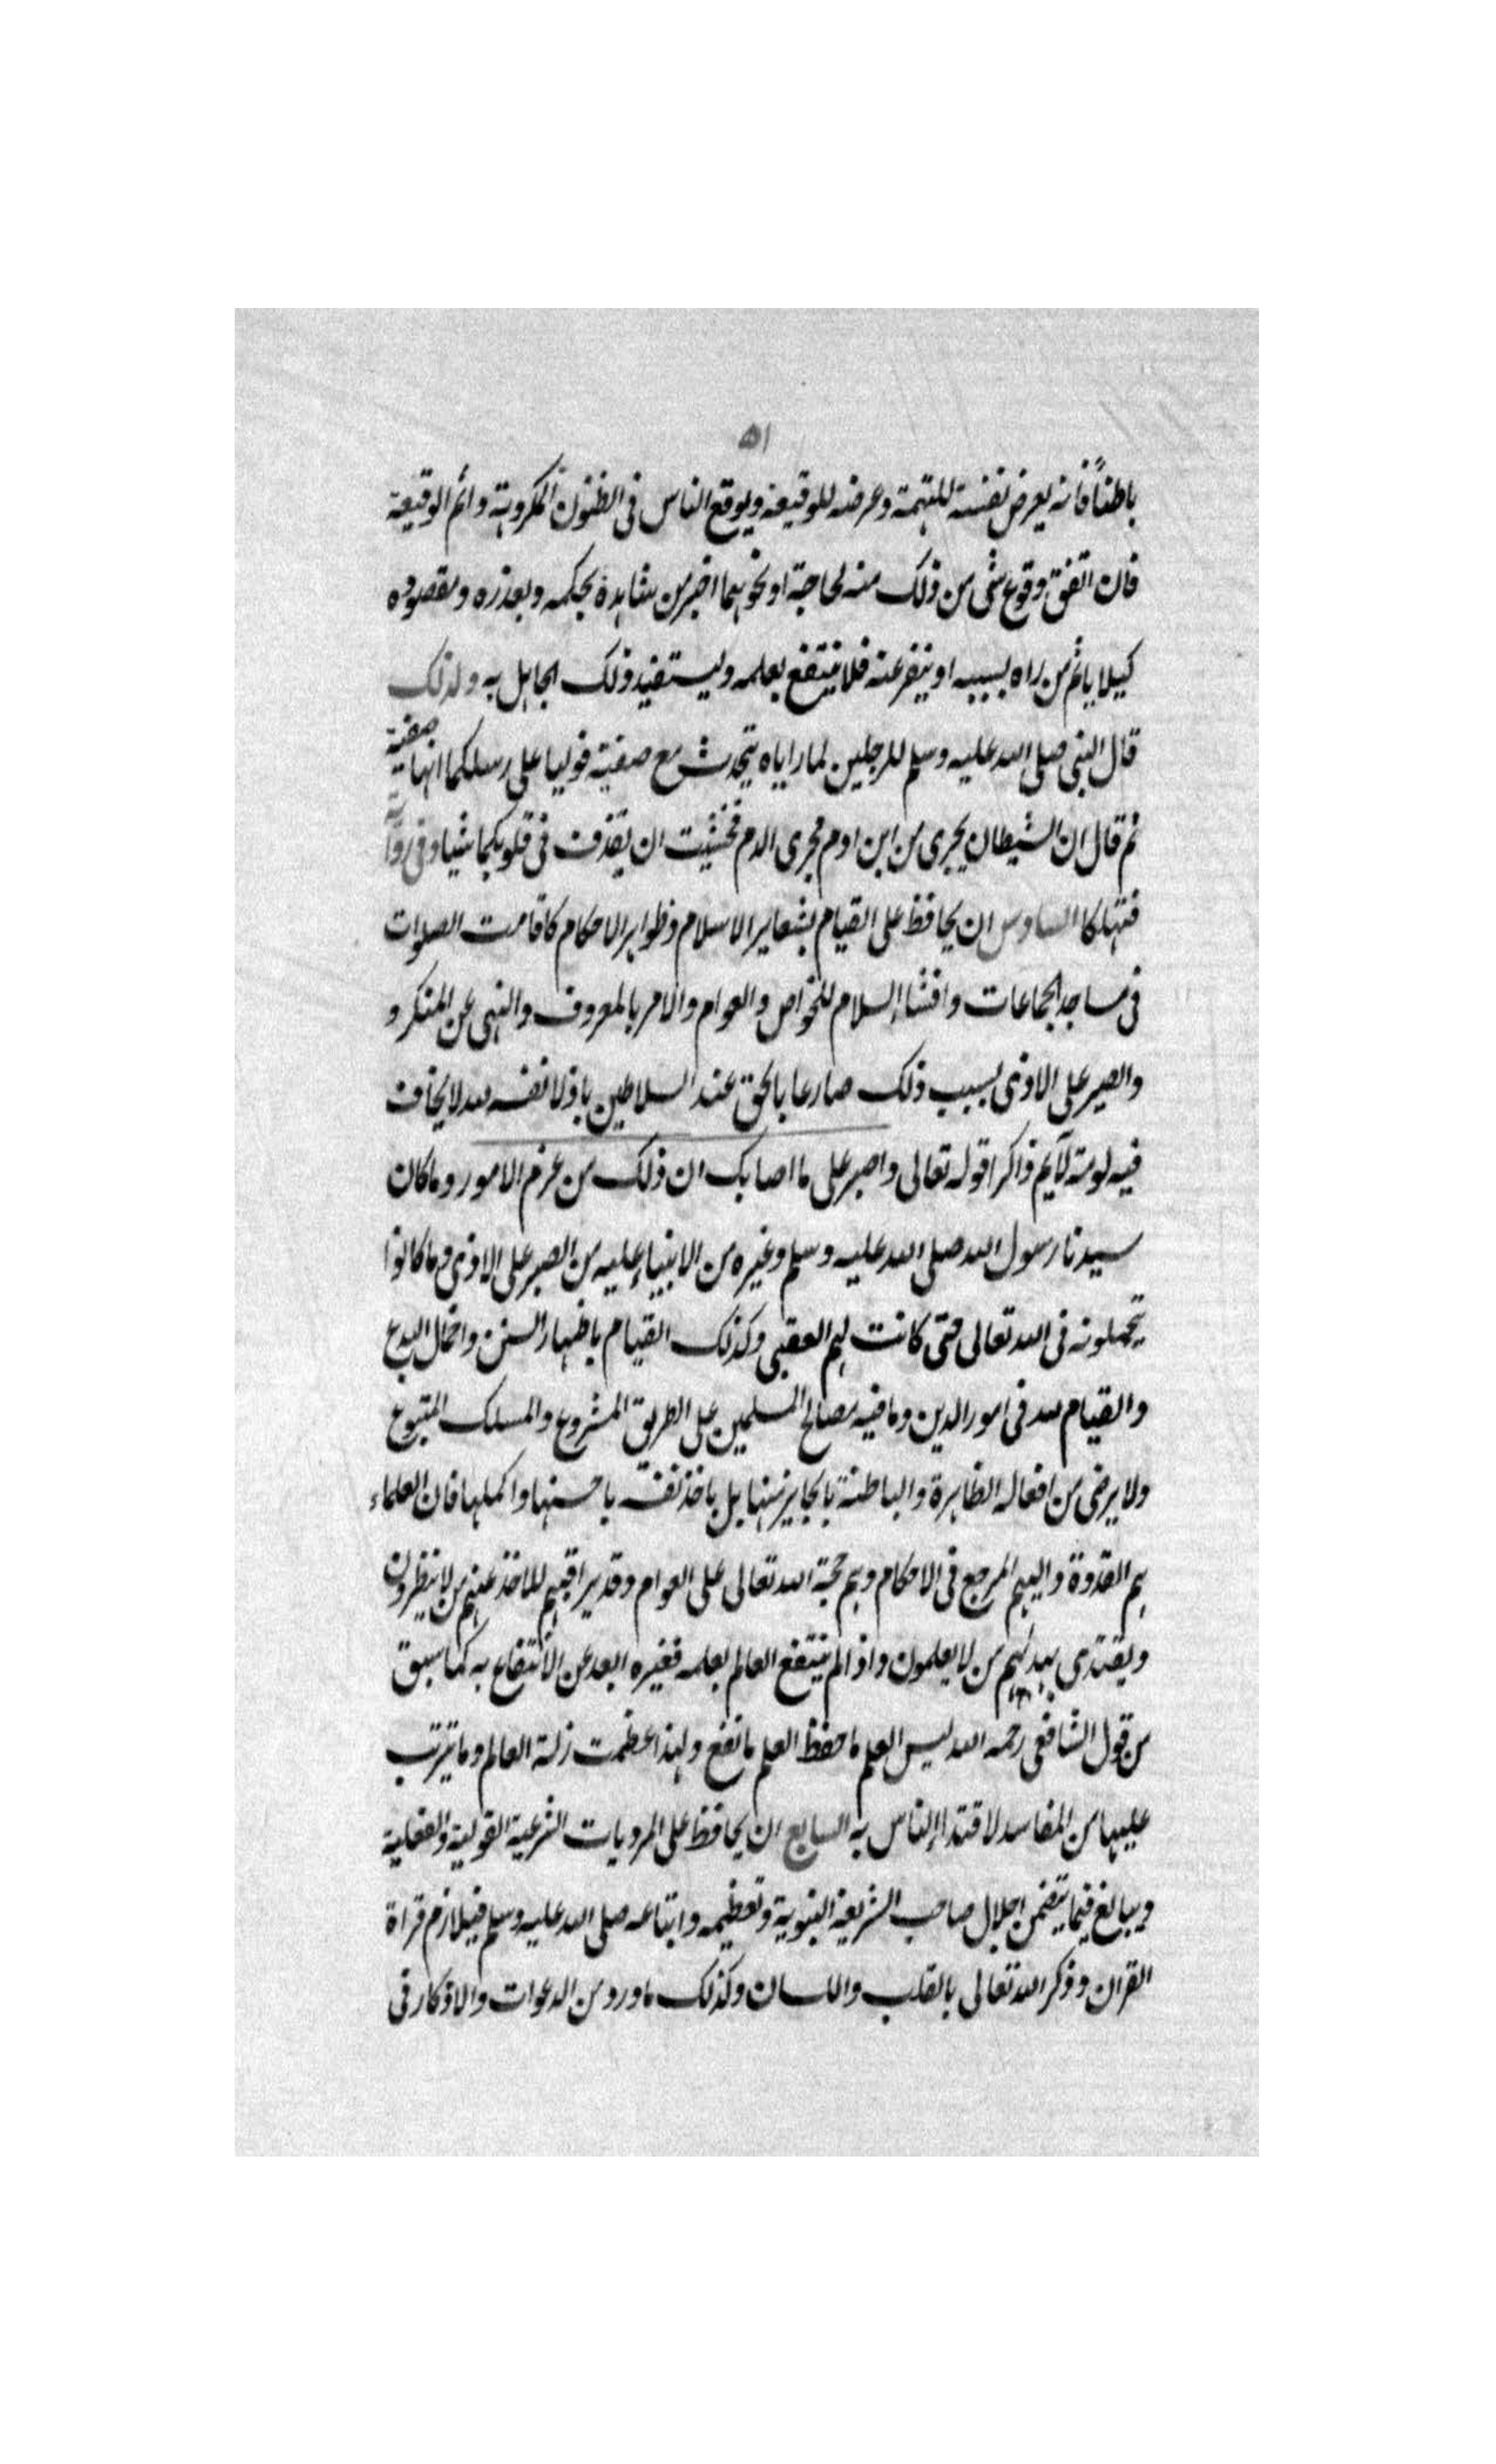 ٥١
باطناً فانه يعرض نفسه للتهمة وعرضه للوقيعة ويوقع الناس فى الظنون المكروهة واثم الوقيعة
فان اتفق وقوع شى من ذلك منه لحاجة او نحوهما اخبر من شاهده بحكمه وبعذره ومقصوده
كيلا ياثم من راه بسببه او ينفر عنه فلا ينتفع بعلمه وليستفيد ذلك الجاهل به ولذلك
قال النبى صلى الله عليه وسلم للرجلين لما راياه يتحدث مع صفية فوليا على رسلكما انها صفية
ثم قال ان الشيطان يجرى من ابن ادم مجرى الدم فخشيت ان يقذف فى قلوبكما شيا وفى رواية
فتهلكا السادس ان يحافظ على القيام بشعاير الاسلام وظواهر الاحكام كاقامت الصلوات
فى مساجد الجماعات وافشا السلام للخواص والعوام والامر بالمعروف والنهى عن المنكر و
والصبر على الاذى بسبب ذلك صارعا بالحق عند السلاطين باذلا نفسه لله لا يخاف
فيه لومة لآيم ذاكرا قوله تعالى واصبر على ما اصابك ان ذلك من عزم الامور وما كان
سيدنا رسول الله صلى الله عليه وسلم وغيره من الانبياء عليه من الصبر على الاذى وما كانوا
يتحملونه فى الله تعالى حتى كانت لهم العقبى وكذلك القيام باظهار السنن واخمال البدع
والقيام لله فى امور الدين وما فيه مصالح المسلمين على الطريق المشروع والمسلك المتبوع
ولا يرضى من افعاله الظاهرة والباطنة بالجايز منها بل ياخذ نفسه باحسنها واكملها فان العلماء
هم القدوة واليهم المرجع فى الاحكام وهم حجة الله تعالى على العوام وقد يراقبهم للاخذ عنهم من لا ينظرون
ويقتدى بهديهم من لا يعلمون واذا لم ينتفع العالم بعلمه فغيره ابعد عن الانتفاع به كما سبق
من قول الشافعى رحمه الله ليس العلم ما حفظ العلم ما نفع ولهذا عظمت زلة العالم وما يترتب
عليها من المفاسد لاقتدا الناس به السابع ان يحافظ على المرويات الشرعية القولية والفعلية
ويبالغ فيما يتضمن اجلال صاحب الشريعة النبوية وتعظيمه واتباعه صلى الله عليه وسلم فيلازم قراة
القران وذكر الله تعالى بالقلب واللسان وكذلك ما ورد من الدعوات والاذكار فى